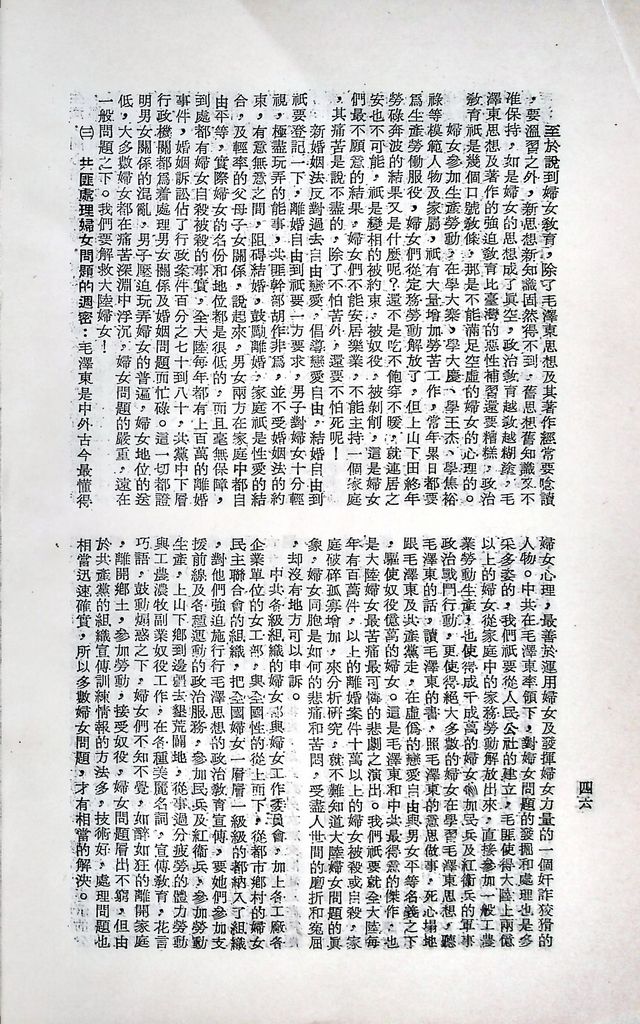 至於說到婦女教育，除了毛澤東思想及其著作經常要唸讀
，要溫習之外，新思想新知識固然得不到，舊思想舊知識又不
准保持，如是婦女的思想成了真空，政治教育越敎越糊塗，毛
澤東思想及著作的強迫敎育比臺灣的惡性補習還要糟糕，政治
敎育祇是幾個口號敎條，那是不能滿足空虛的婦女的心理的。
婦女參加生產勞動，在學大寨，學大慶，學王杰，學焦裕
祿等模範人物及家屬，祇有大量增加勞苦工作，常年累日都要
爲生產勞働服役，婦女們從家務勞動解放了，但上山下田終年
勞碌奔波的結果又是什麼呢？還不是吃不飽穿不暖，就連居之
安也不可能，祇是變相的被約束，被奴役，被剝削，這是婦女
們最不願意的結果，婦女們不能安居樂業，不能主持一個家庭
，其痛苦是說不盡的，除了不怕苦外，還要不怕死呢！
新婚姻法反對過去自由戀愛，倡導戀愛自由，結婚自由到
祇要登記一下，離婚自由到祇要一方要求，男子對婦女十分輕
視，極盡玩弄的能事，共匪幹部胡作非爲，並不受婚姻法的約
束，有意無意之間，阻碍結婚，鼓勵離婚，家庭祇是性愛的結
合，及輕率的父母子女關係，說起來，男女兩方在家庭中都自
由平等，實際婦女的名份和地位都是很低的，而且毫無保障，
到處都有婦女自殺被殺的事實，全大陸每年都有上百萬的離婚
事件，婚姻訴訟佔了行政案件百分之七十到八十，共黨中下層
行政機關都爲着處理男女關係及婚姻問題而忙碌。這一切都證
明男女關係的混亂，男子壓迫玩弄婦女的普遍，婦女地位的迭
低，大多數婦女都在痛苦深淵中浮沉，婦女問題的嚴重，遠在
一般問題之下。我們要解救大陸婦女！
㈢　共匪處理婦女問題的週密：毛澤東是中外古今最懂得
婦女心理，最善於運用婦女及發揮婦女力量的一個奸詐狡猾的
人物。中共在毛澤東率領下，對婦女問題的發掘和處理也是多
采多姿的，我們祇要從人民公社的建立，毛匪使得大陸上兩億
以上的婦女從家庭中的家務勞動解放出來，直接參加一般工農
業勞動生產，也使得成千成萬的婦女參加民兵及紅衛兵的軍事
政治戰鬥行動，更使得絕大多數的婦女在學習毛澤東思想，聽
毛澤東的話，讀毛澤東的書，照毛澤東的意思做事，死心塌地
跟毛澤東及共產黨走，在虛僞的戀愛自由與男女平等名義之下
，驅使奴役億萬的婦女。這是毛澤東和中共最得意的傑作，也
是大陸婦女最苦痛最可憐的悲劇之演出。我們祇要就全大陸每
年有百萬件，以上的離婚案件十萬以上的婦女被殺或自殺，家
庭破碎孤寡增加，來分析研究，就不難知道大陸婦女問題的眞
象，婦女同胞是如何的悲痛和苦悶，受盡人世間的磨折和寃屈
，却沒有地方可以申訴。
中共各級組織的婦女部與婦女工作委員會，加上各工廠各
企業單位的女工部，與全國性的從上而下，從都市鄉村的婦女
民主聯合會的組織，把全國婦女一層層一級級的都納入了組織
，對他們強迫施行毛澤思想的政治敎育宣傳，要她們參加支
援前線及各種運動的政治服務，參加民兵及紅衛兵，參加勞動
生產，上山下鄉到邊疆去墾荒闢地，從事過分疲勞的體力勞動
與工農漁牧副業奴役工作，在各種美麗名詞，宣傳敎育，花言
巧語，鼓動煽惑之下，婦女們不知不覺，如醉如狂的離開家庭
，離開鄉土，參加勞動，接受奴役，婦女問題層出不窮，但由
於共產黨的組織宣傳訓練情報的方法多，技術好，處理問題也
相當迅速確實，所以多數婦女問題，才有相當的解決。
四六